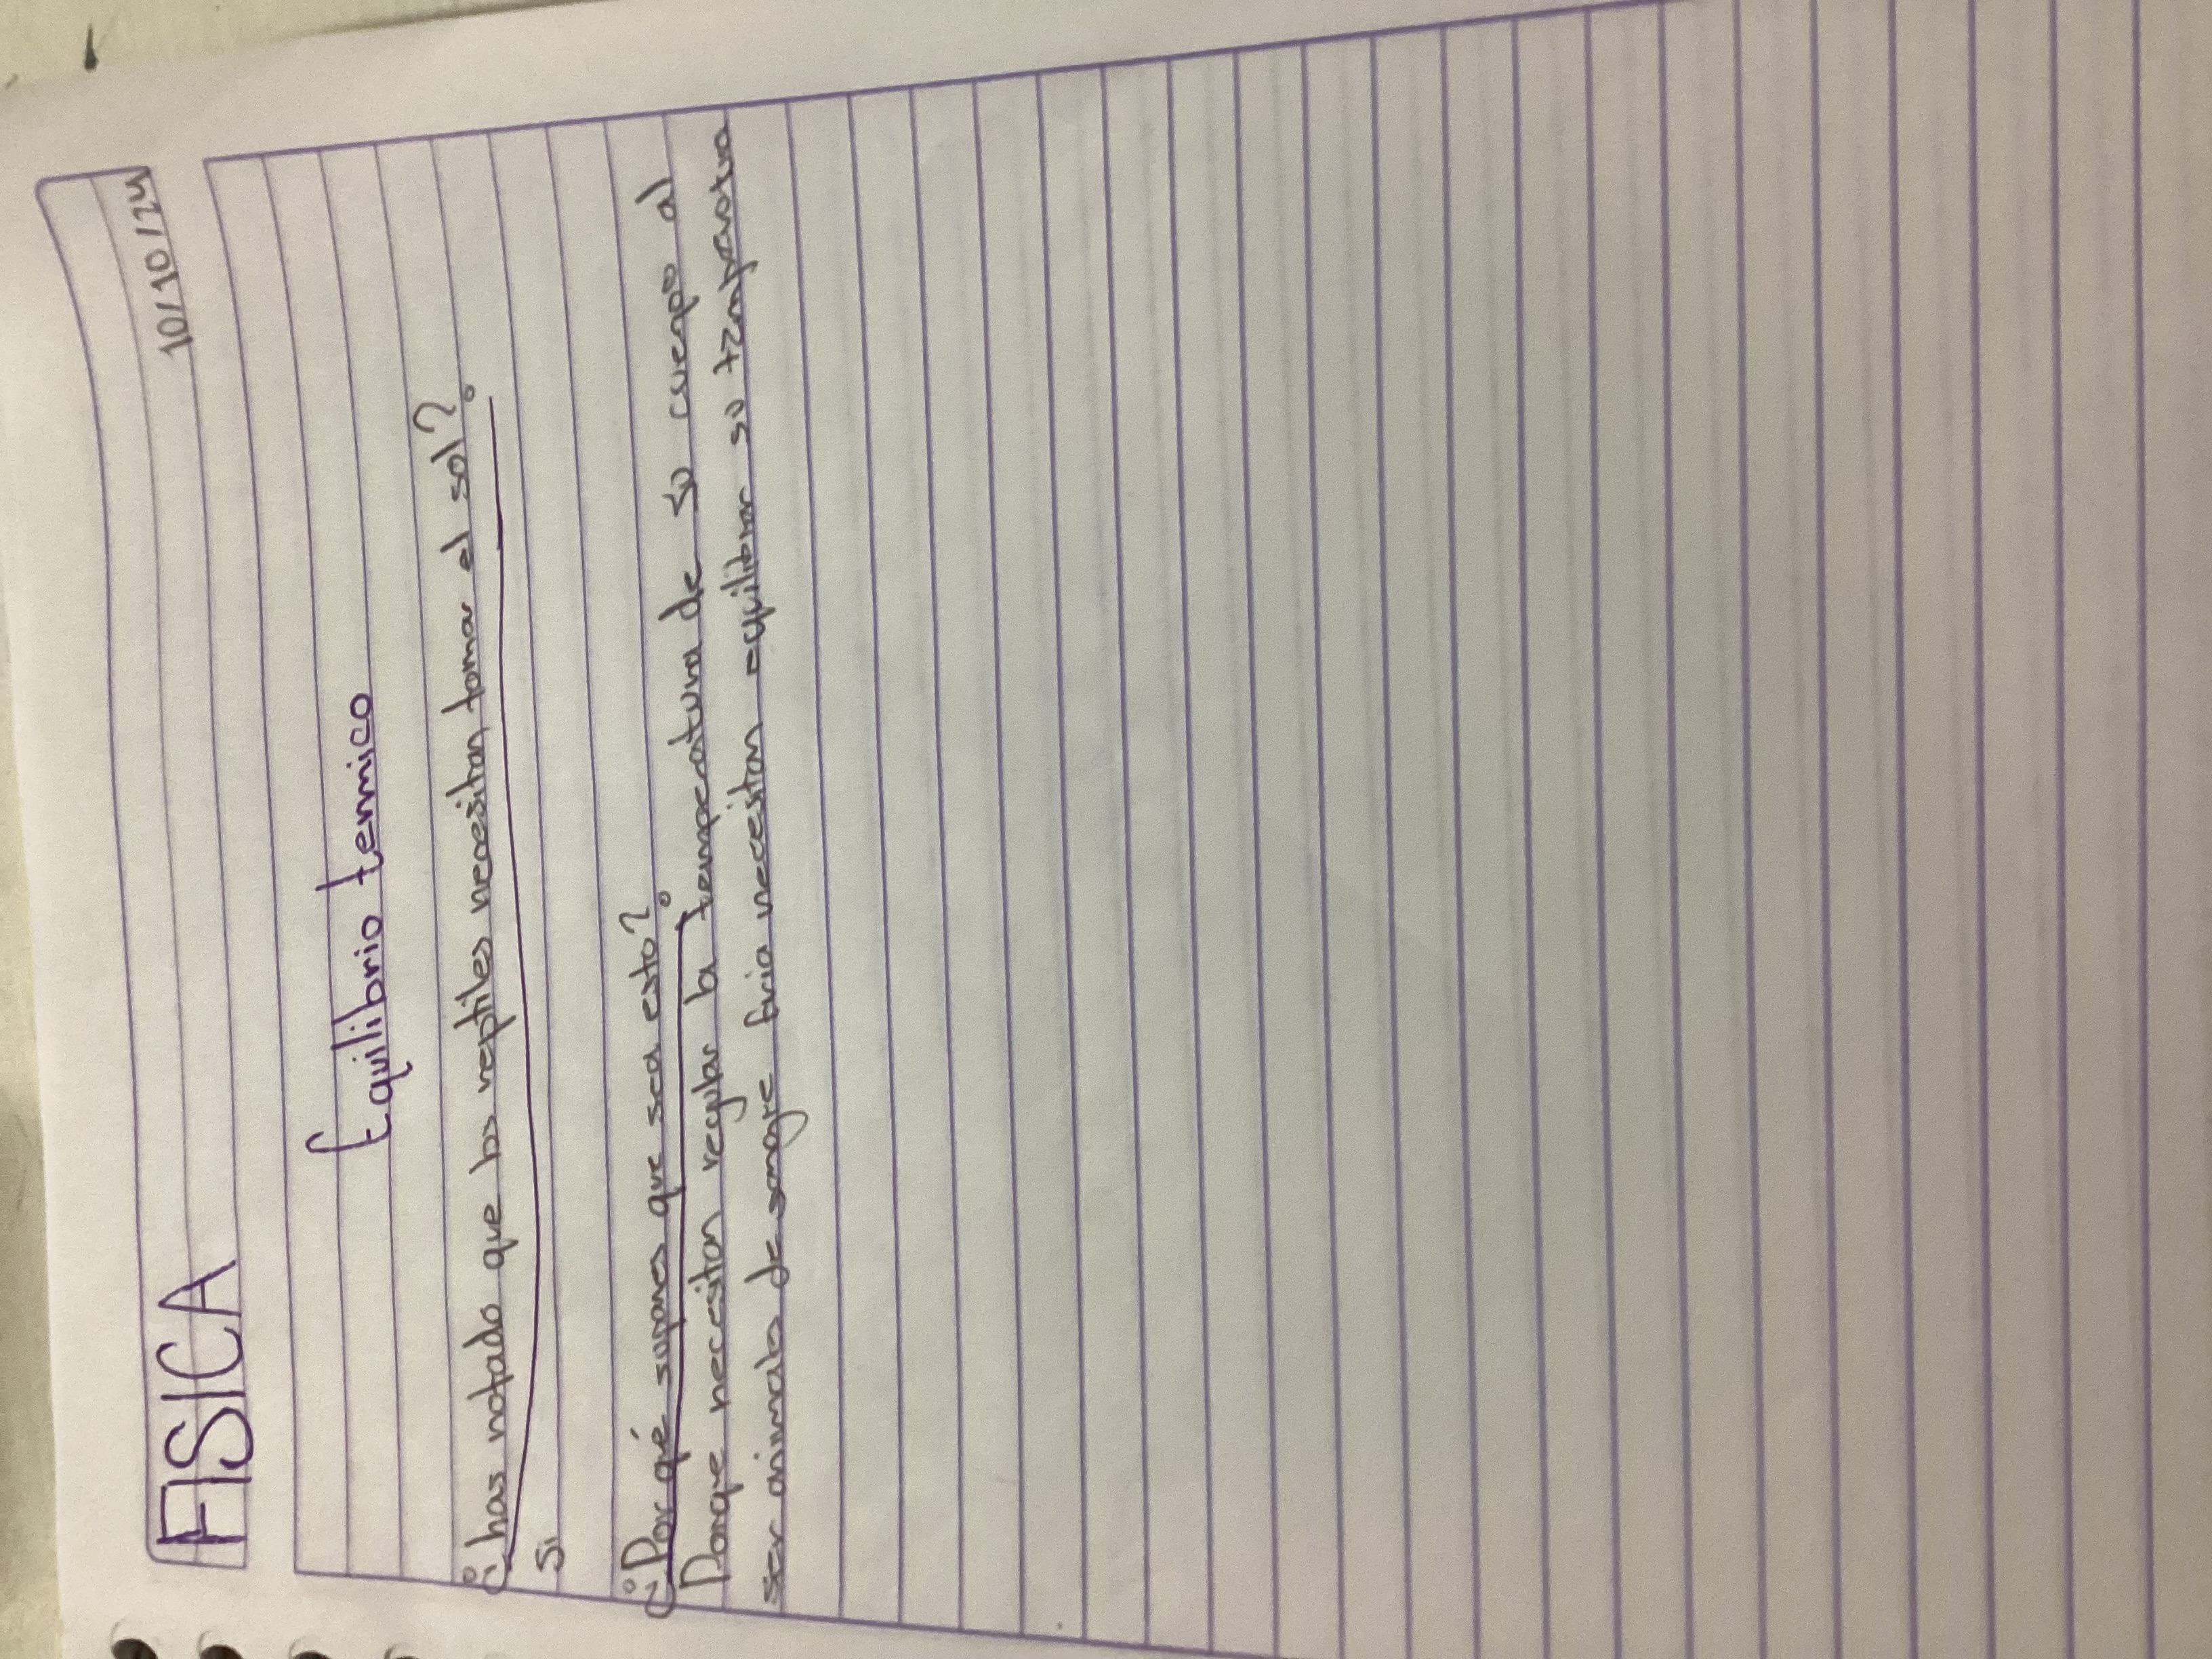 FISICA
10/10/24
Equilibrio termico
¿has notado que los reptiles necesitan tomar el sol?
Si
¿Por qué supones que sea esto?
Porque necesitan regular la temperatura de su cuerpo al
ser animales de sangre fria necesitan equilibrar su temperatura